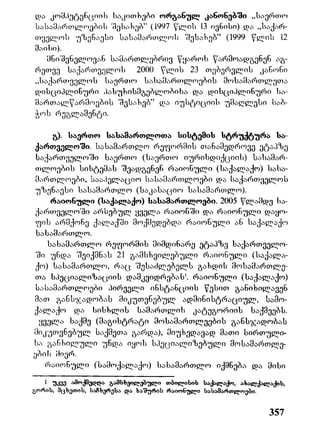 და კომპეტენციის საკითხები ორგანულ კანონებში „საერთო
სასამართლოების შესახებ“ (1997 წლის 13 ივნისი) და „საქარ-
თველოს უზენაესი სასამართლოს შესახებ“ (1999 წლის 12
მაისი).
მნიშვნელოვან სამართლებრივ წყაროს წარმოადგენენ აგ-
რეთვე საქართველოს 2000 წლის 23 თებერვლის კანონი
„საქართველოს საერთო სასამართლოების მოსამართლეთა
დისციპლინური პასუხისმგებლობისა და დისციპლინური სა-
მართალწარმოების შესახებ“ და იუსტიციის უმაღლესი საბ-
ჭოს რეგლამენტი.
გ). საერთო სასამართლოთა სისტემის სტრუქტურა სა-
ქართველოში. სასამართლო რეფორმის თანამედროვე ეტაპზე
საქართველოში საერთო (საერთო იურისდიქციის) სასამარ-
თლოების სისტემას შეადგენენ რაიონული (საქალაქო) სასა-
მართლოები, სააპელაციო სასამართლოები და საქართველოს
უზენაესი სასამართლო (საკასაციო სასამართლო).
რაიონული (საქალაქო) სასამართლოები. 2005 წლამდე სა-
ქართველოში არსებულ ყველა რაიონში და რაიონული დაყო-
ფის არმქონე ქალაქში მოქმედებდა რაიონული ან საქალაქო
სასამართლო.
სასამართლო რეფორმის მიმდინარე ეტაპზე საქართველო-
ში უნდა შეიქმნას 21 გამსხვილებული რაიონული (საქალა-
ქო) სასამართლო, რაც შესაძლებელს გახდის მოსამართლე-
თა სპეციალიზაციის დამკვიდრებას¹. რაიონული (საქალაქო)
სასამართლოები პირველი ინსტანციის წესით განიხილავენ
მათ განსჯადობას მიკუთვნებულ ადმინისტრაციულ, სამო-
ქალაქო და სისხლის სამართლის კატეგორიის საქმეებს.
ყველა საქმე (მაგისტრატი მოსამართლეების განსჯადობას
მიკუთვნებულ საქმეთა გარდა), მიუხედავად მათი სირთული-
სა განხილული უნდა იყოს სპეციალიზებული მოსამართლე-
ების მიერ.
რაიონული (სამოქალაქო) სასამართლო იქმნება და მისი
1 უკვე ამოქმედდა გამსხვილებული თბილისის საქალაქო, ახალქალაქის,
გორის, მცხეთის, სამტრედიის და ხაშურის რაიონული სასამართლოები.
357